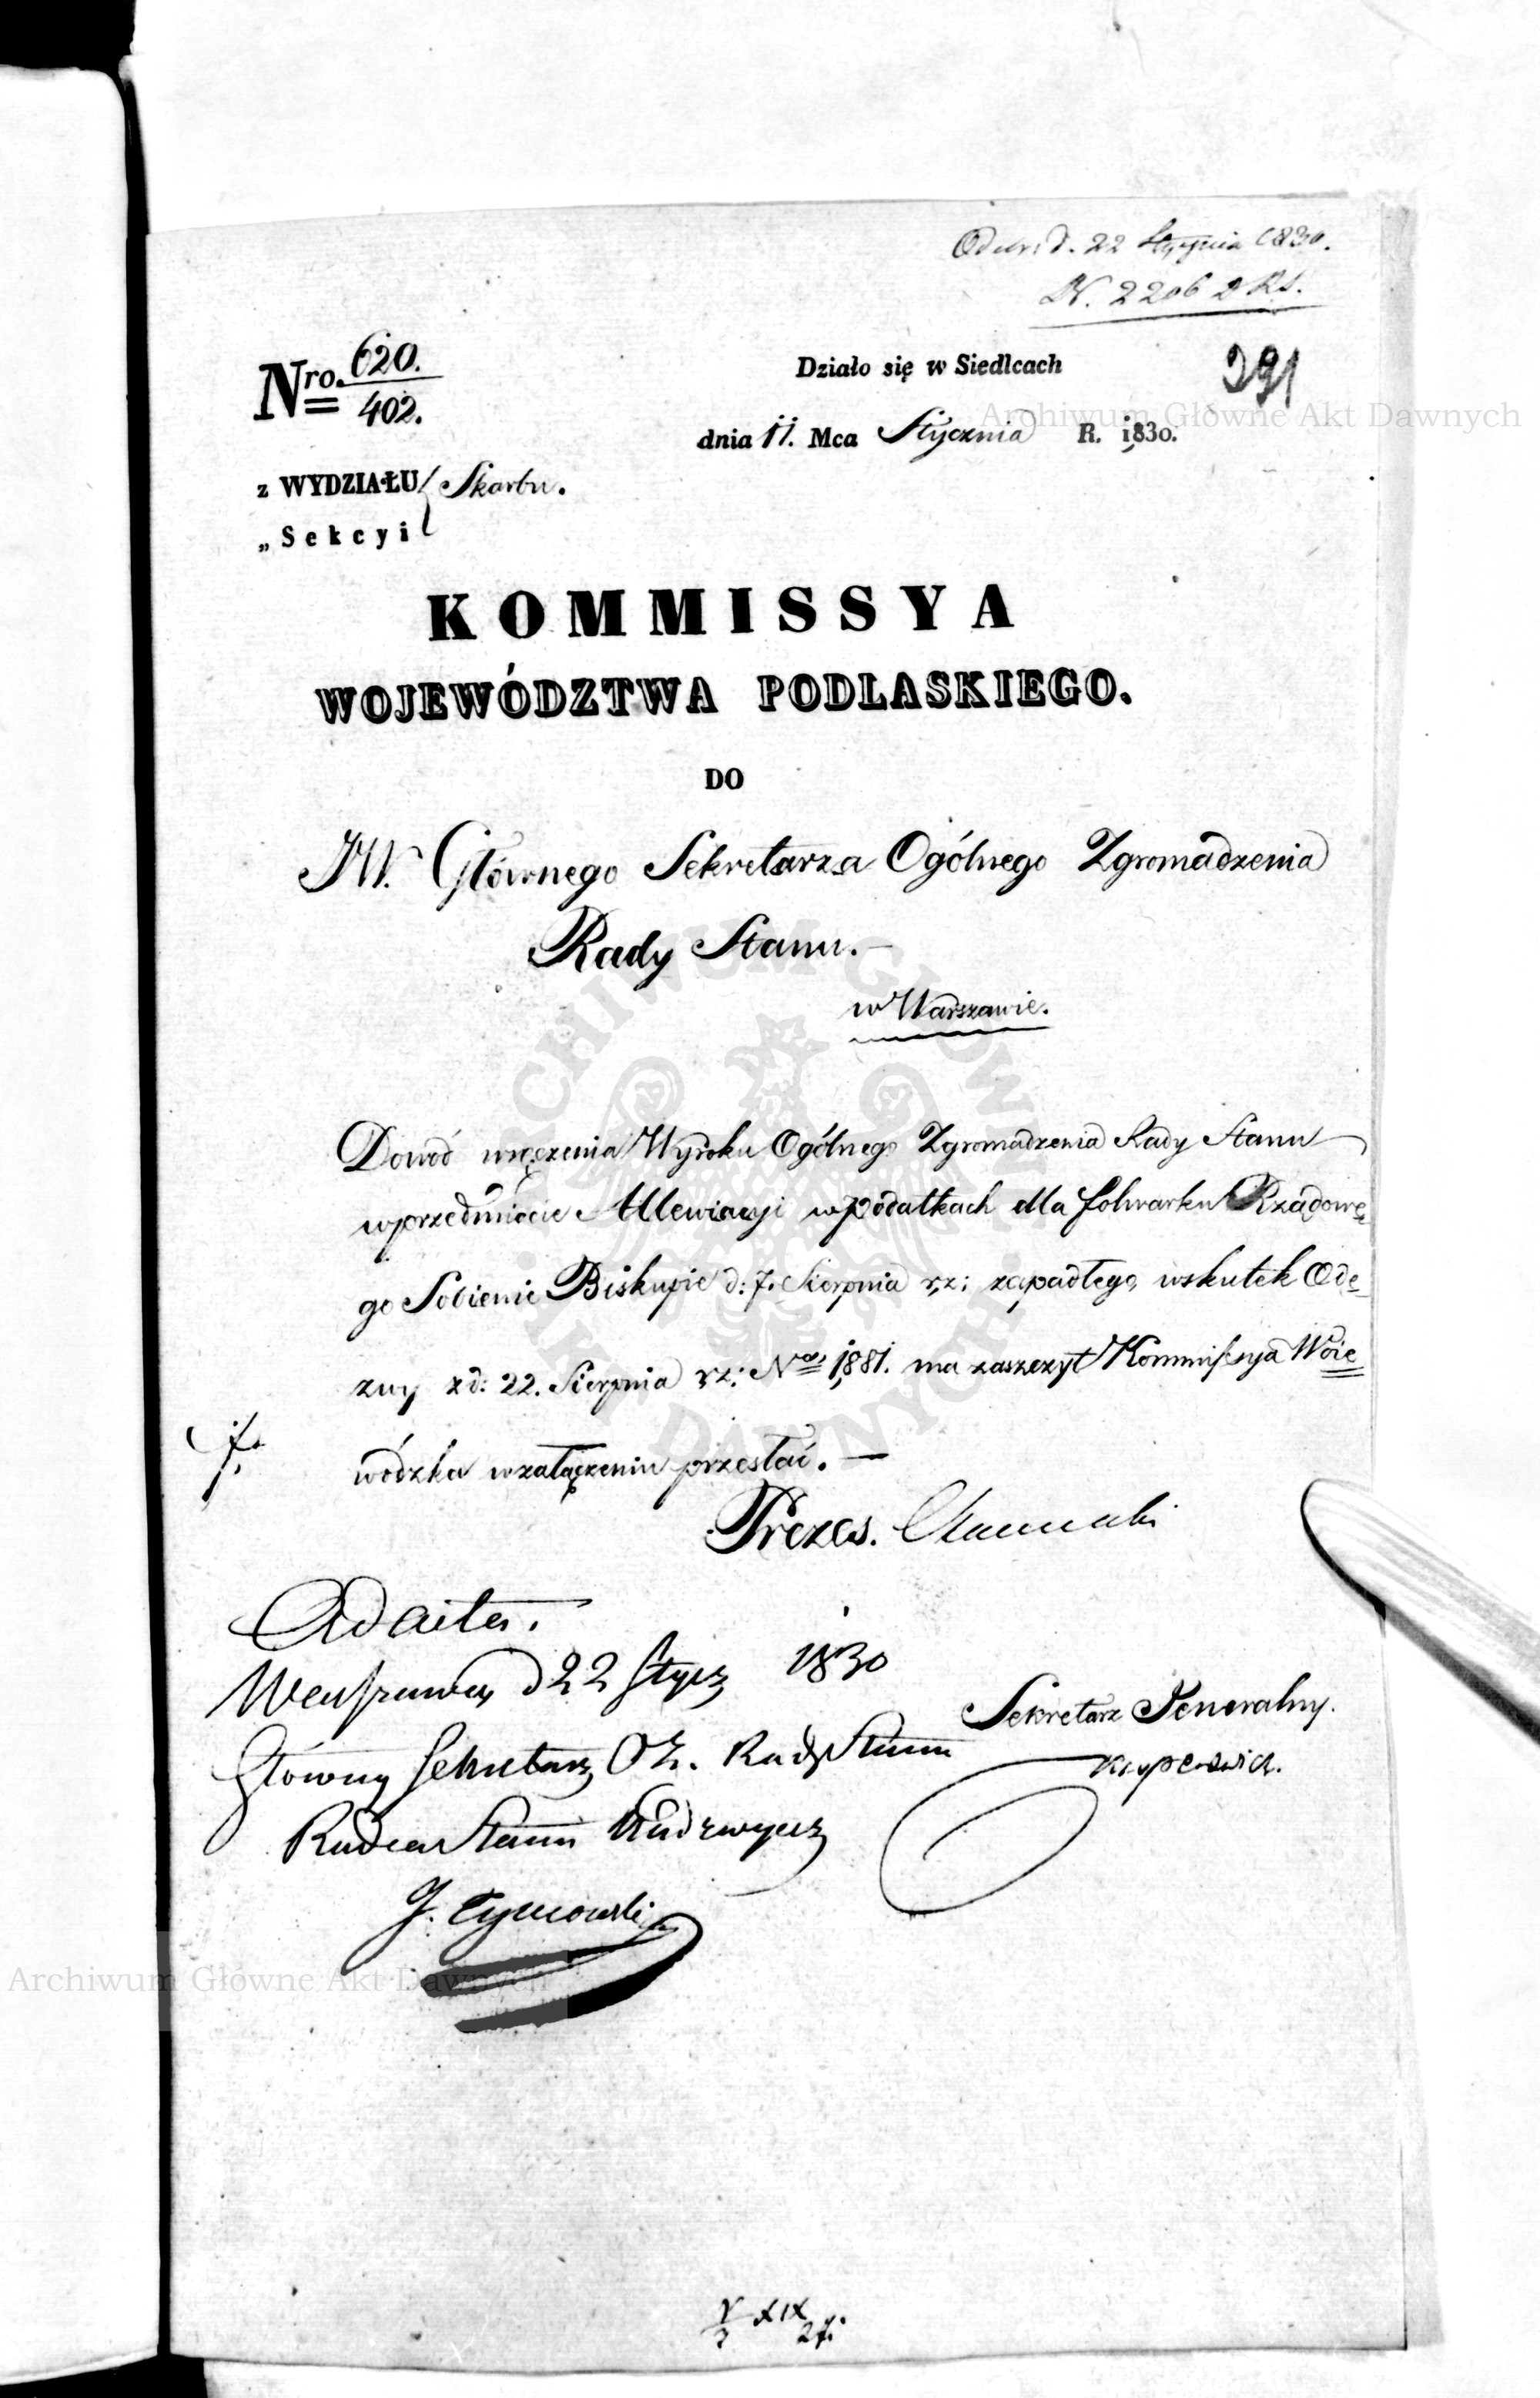 Odebr. d. 22 Stycznia 1830.
N. 2206 2 RS.
Nro. 620./402.
Działo się w Siedlcach
291
dnia 11. Mca Stycznia R. 1830.
z WYDZIAŁU Skarbu.
„ Sekcyi
KOMMISSYA
WOJEWÓDZTWA PODLASKIEGO.
DO
JW. Głównego Sekretarza Ogólnego Zgromadzenia
Rady Stanu. —
w Warszawie.
Dowód wręczenia Wyroku Ogólnego Zgromadzenia Rady Stanu
w przedmiocie Allewiacyi w podatkach dla folwarku Rządowe
go Sobienie Biskupie d: 7. Sierpnia r. z: zapadłego, wskutek Ode
zwy z d: 22. Sierpnia r. z: Nro 1,881. ma zaszczyt Kommissya Woie
wódzka w załączeniu przesłać. —
Prezes.
Ad acta.
Warszawa d 22 Stycz 1830
Sekretarz Jeneralny.
Główny Sekretarz O Z. Rady Stanu
Radca Stanu Nadzwycz
J. Tymowski
Archiwum Główne Akt Dawnych
Archiwum Główne Akt Dawnych
ARCHIWUM GŁÓWNE AKT DAWNYCH